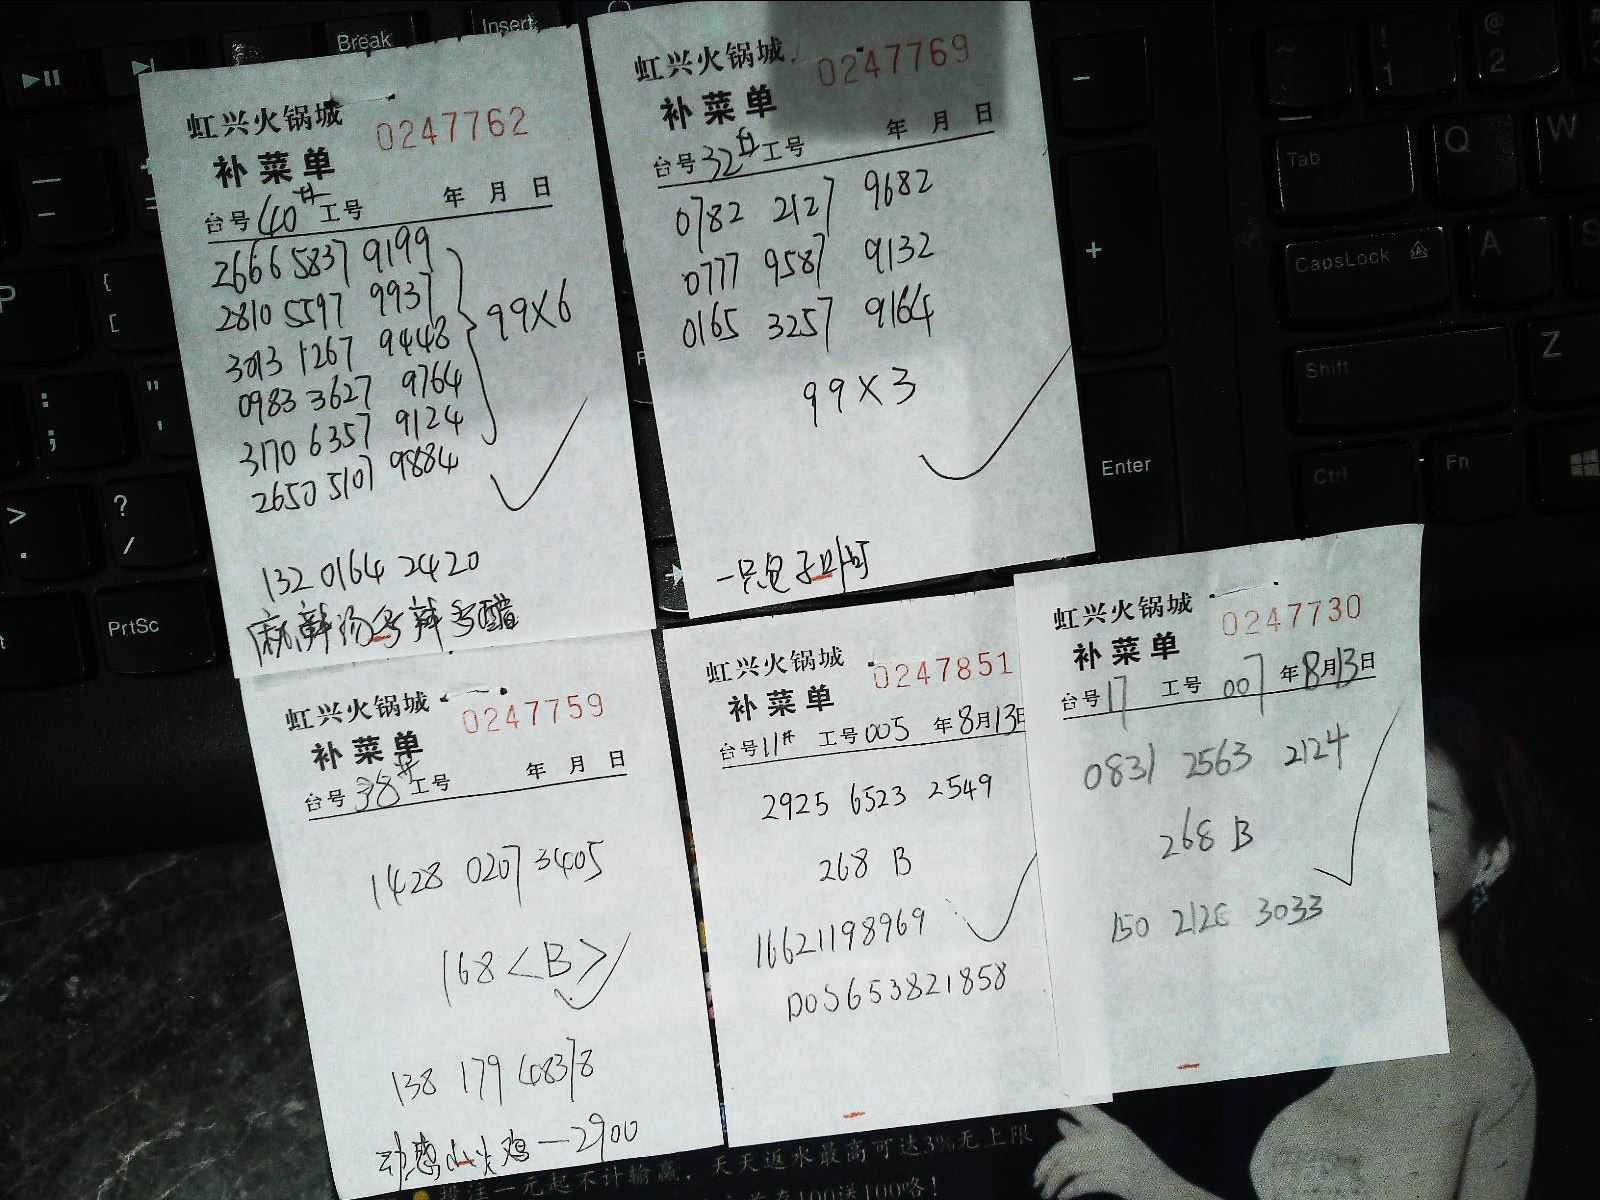 虹兴火锅城 0247762
补菜单
台号 40# 工号 年 月 日
2666 5837 9199
2810 5597 9937
3013 1267 9448
0983 3627 9764
3170 6357 9124
2650 5107 9884
99×6
132 0164 2420
虹兴火锅城 0247769
补菜单
台号 32# 工号 年 月 日
0782 2127 9682
0777 9587 9132
0165 3257 9164
99×3
一只包子
虹兴火锅城 0247759
补菜单
台号 38# 工号 年 月 日
1428 0207 3405
168<B>
138 179 48378
火鸡—2900
虹兴火锅城 0247851
补菜单
台号 11# 工号 005 年 8月13日
2925 6523 2549
268 B
16621198969
DOS653821858
虹兴火锅城 0247730
补菜单
台号 17 工号 007 年 8月13日
0831 2563 2124
268 B
150 2128 3033
投注一元起不计输赢，天天返水最高可达3%无上限
100送100咯！
Break
Insert
PrtSc
Enter
Tab
Q
W
CapsLock
A
S
Shift
Z
Ctrl
Fn
P